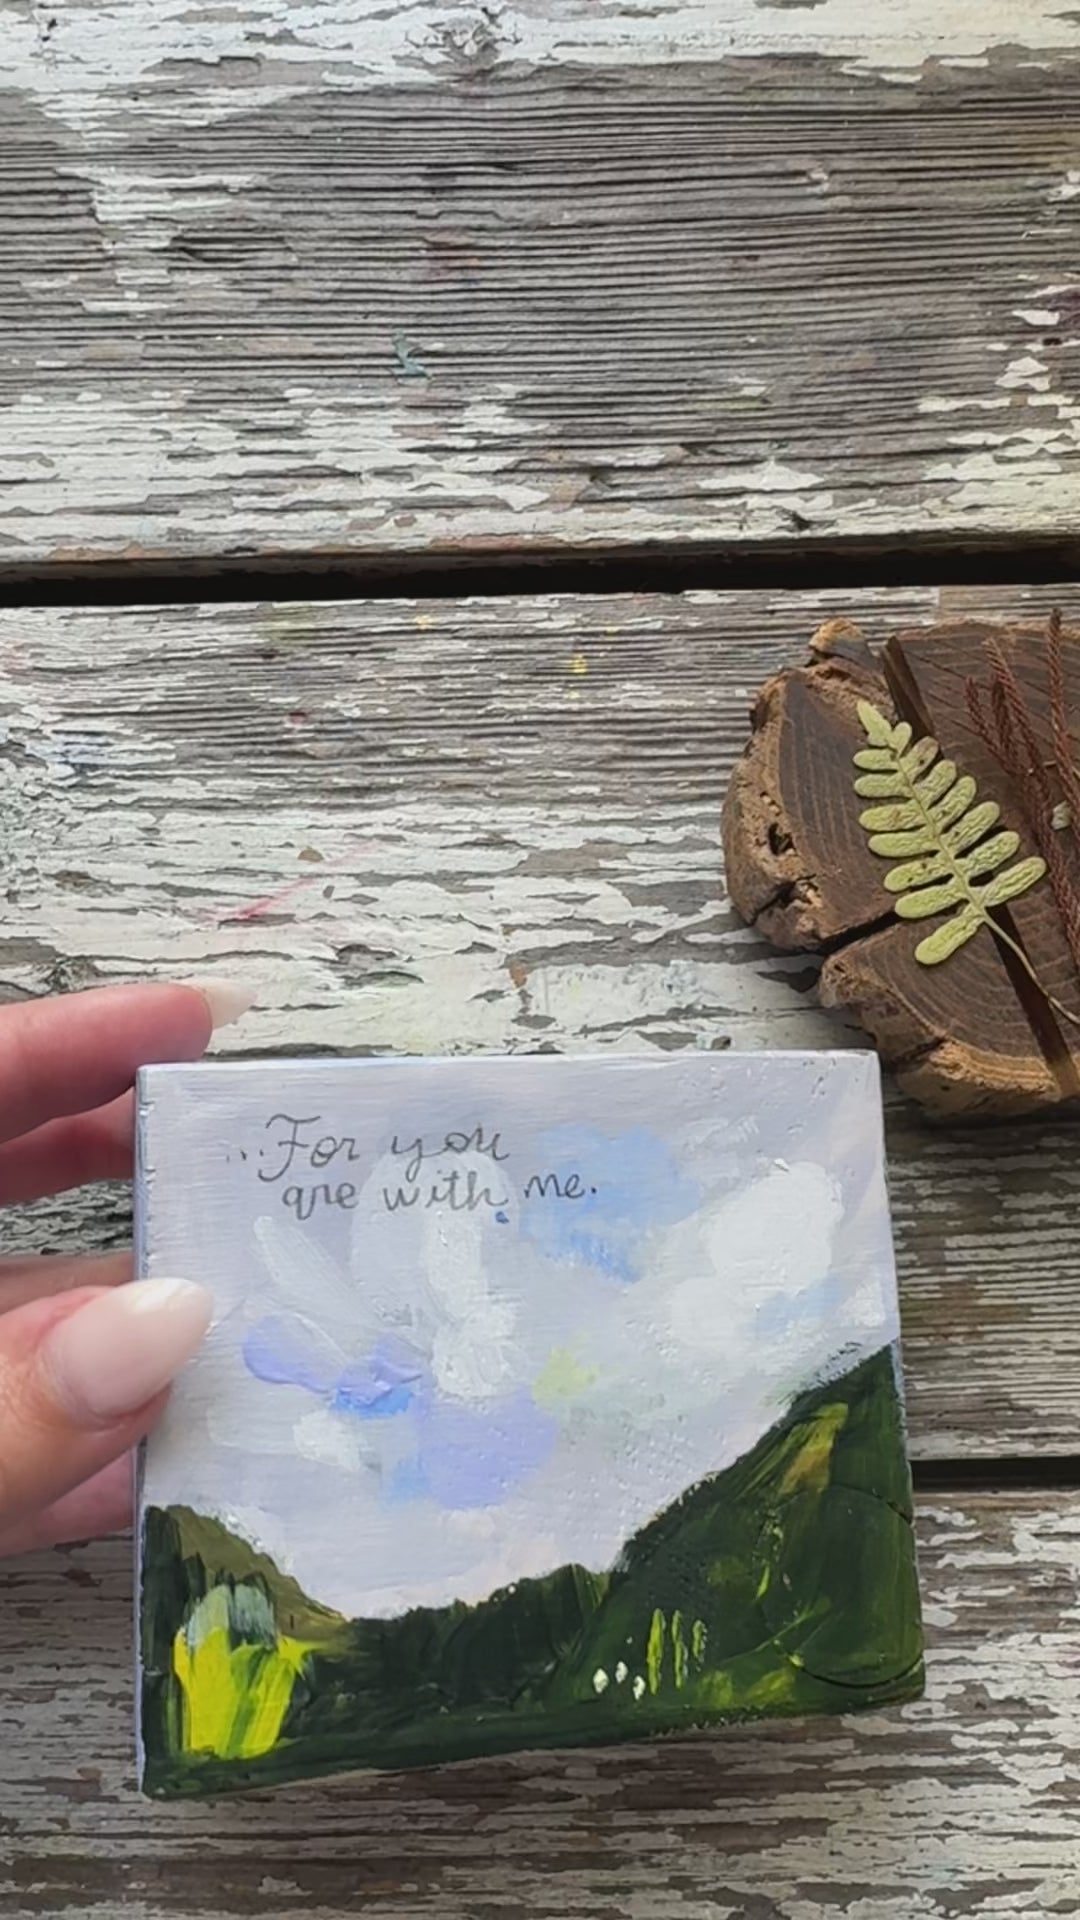 ...For you
are with me.